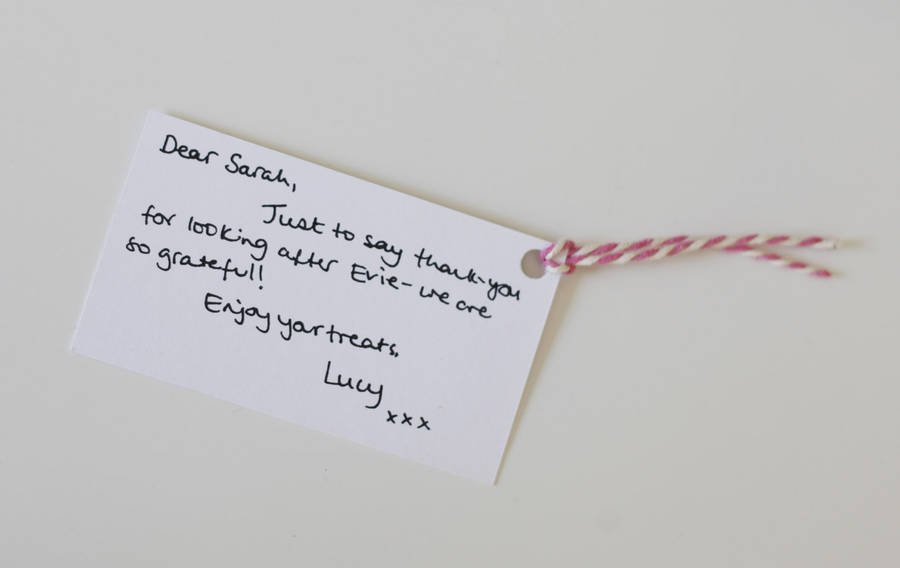 Dear Sarah,
Just to say thank-you
for looking after Evie - we are
so grateful!
Enjoy your treats.
Lucy
xxx